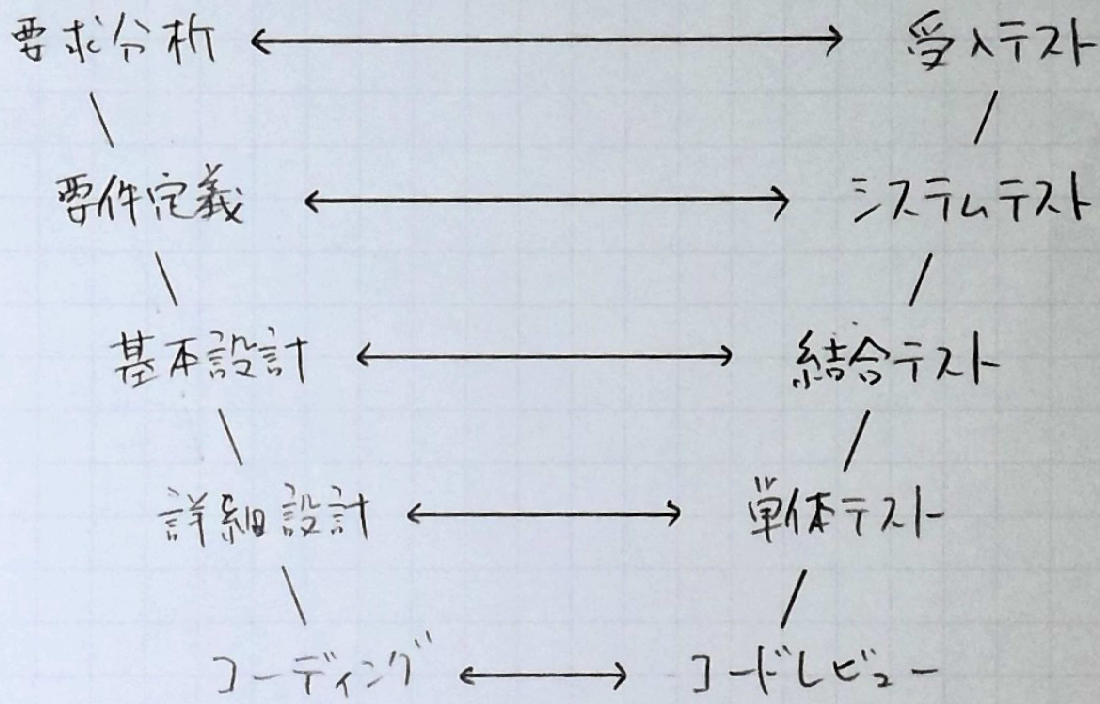 要求分析 ←→ 受入テスト
要件定義 ←→ システムテスト
基本設計 ←→ 結合テスト
詳細設計 ←→ 単体テスト
コーディング ←→ コードレビュー